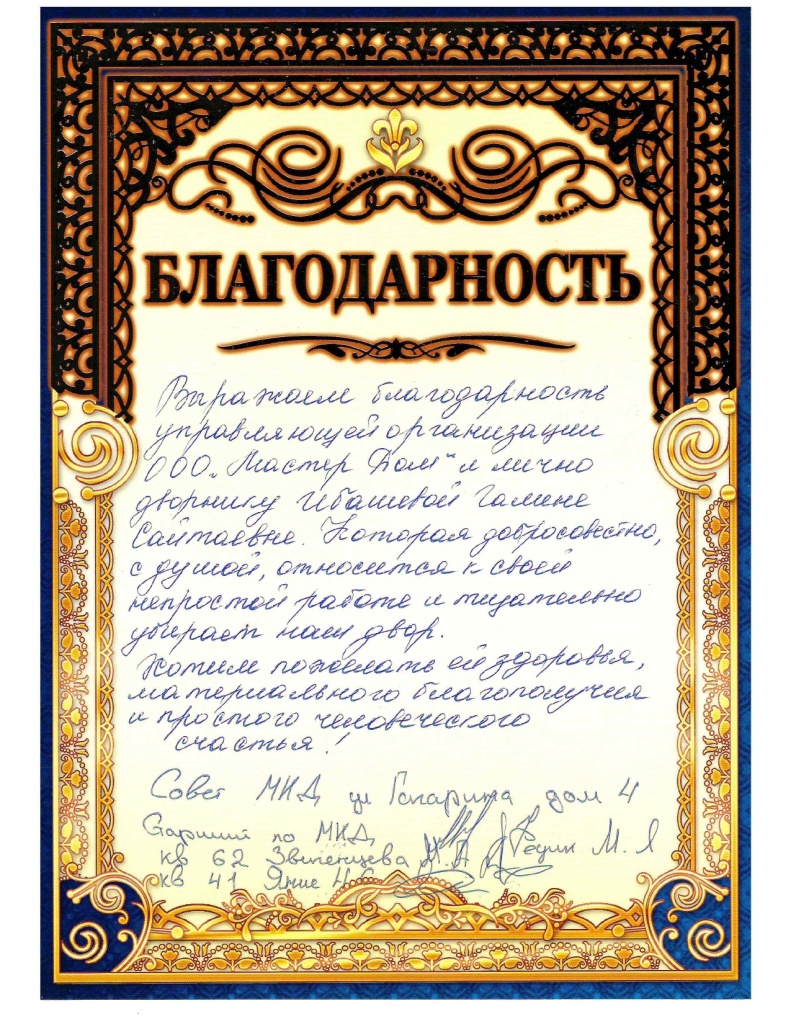 БЛАГОДАРНОСТЬ
Выражаем благодарность
управляющей организации
ООО „Мастер Дом" и лично
дворнику Ибашевой Галине
Сайтаевне. Которая добросовестно,
с душой, относится к своей
непростой работе и тщательно
убирает наш двор.
Хотим пожелать ей здоровья,
материального благополучия
и простого человеческого
счастья!
Совет МКД ул Гагарина дом 4
Старший по МКД
кв 62
кв 41